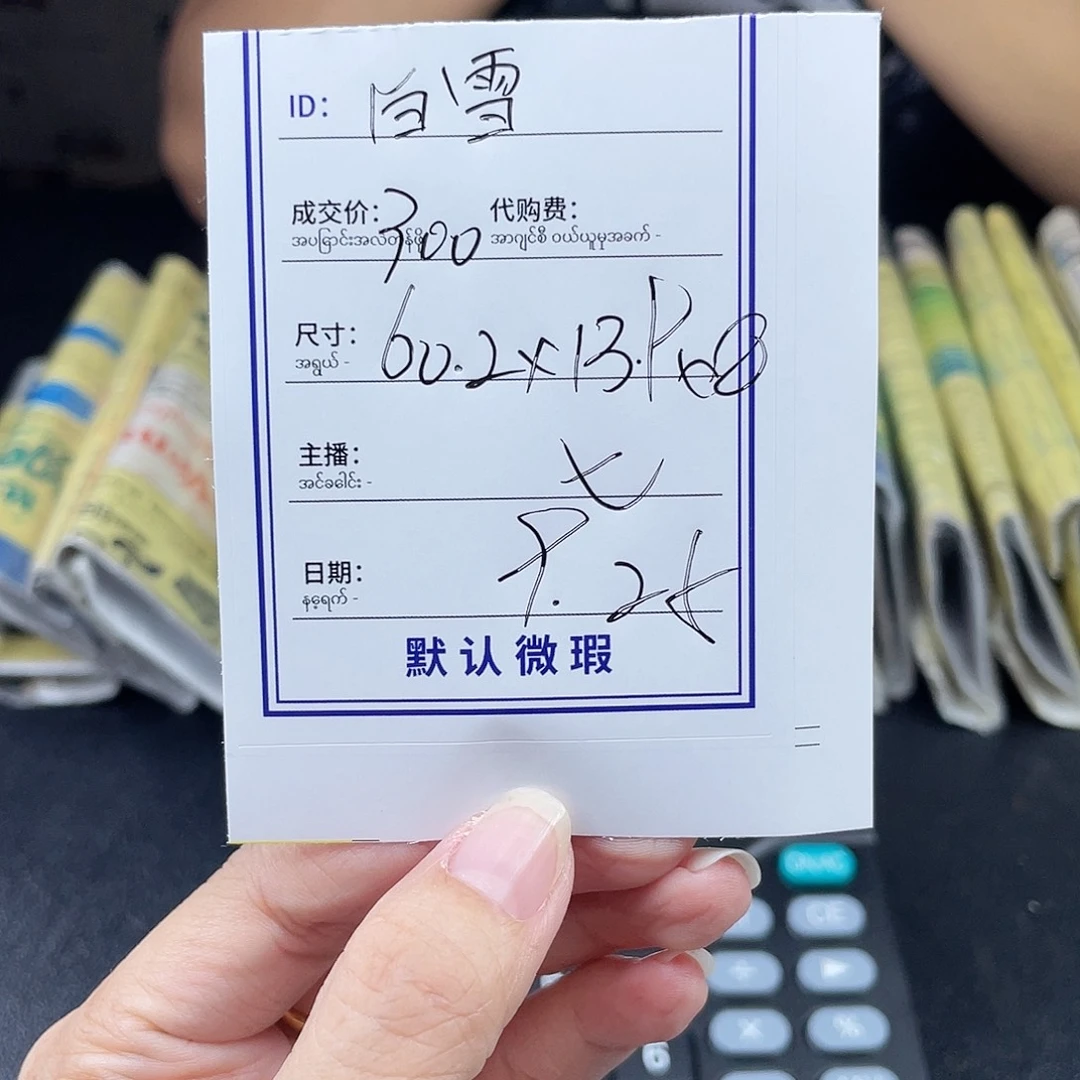 ID: 白雪
成交价: 300 代购费:
အပြောင်းအလဲတန်ဖိုး အာဂျင်စီ ဝယ်ယူမှုအခက် -
尺寸: 60.2x13.9x8
အရွယ် -
主播: 七
အင်ခဒေါင်း -
日期: 9.24
နေ့ရက် -
默认微瑕
CE
%